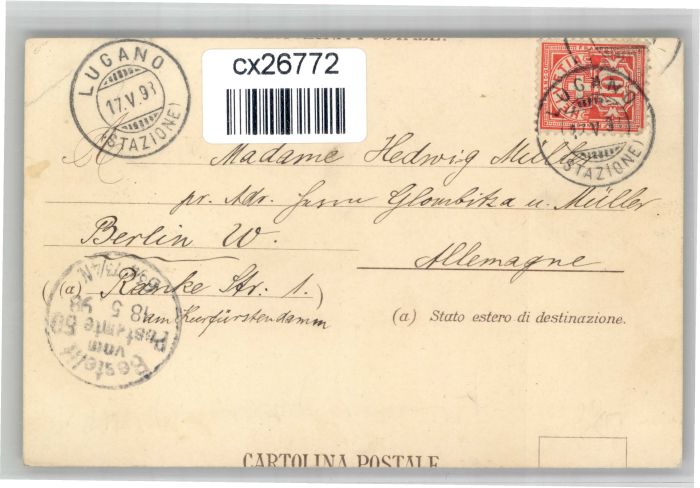 CARTOLINA POSTALE
LUGANO
17.V.98
(STAZIONE)
cx26772
HELVETIA
10
LUGANO
17.V.9
(STAZIONE)
Madame Hedwig Müller
pr. Adr. Herrn Glombitza u. Müller.
Berlin W.
Allemagne
(a) Ranke Str. 1.)
am Kurfürstendamm
(a) Stato estero di destinazione.
Bestellt
vom
Postamte 50
18 5
98
CARTOLINA POSTALE